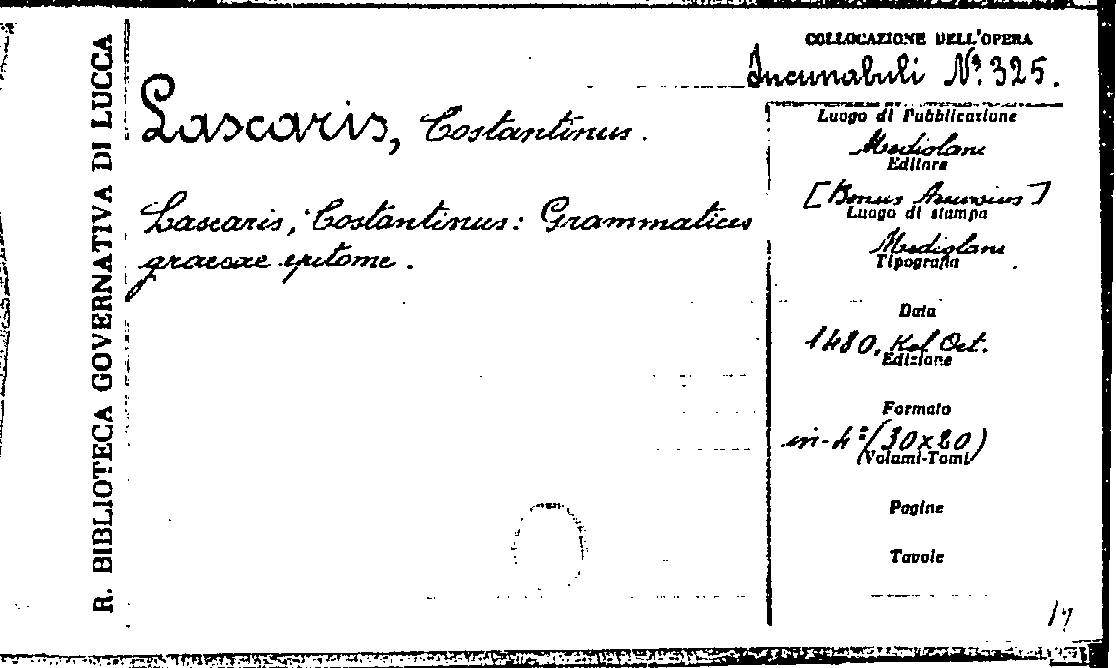 R. BIBLIOTECA GOVERNATIVA DI LUCCA
COLLOCAZIONE DELL'OPERA
Incunabuli Nº. 325.
Lascaris, Costantinus.
Lascaris, Costantinus: Grammatices
graecae epitome.
Luogo di Pubblicazione
Mediolani
Editore
[Bonus Accursius]
Luogo di stampa
Mediolani
Tipografia
Data
1480, Kal Oct.
Edizione
Formato
in-4º (30x20)
(Volumi-Tomi)
Pagine
Tavole
17